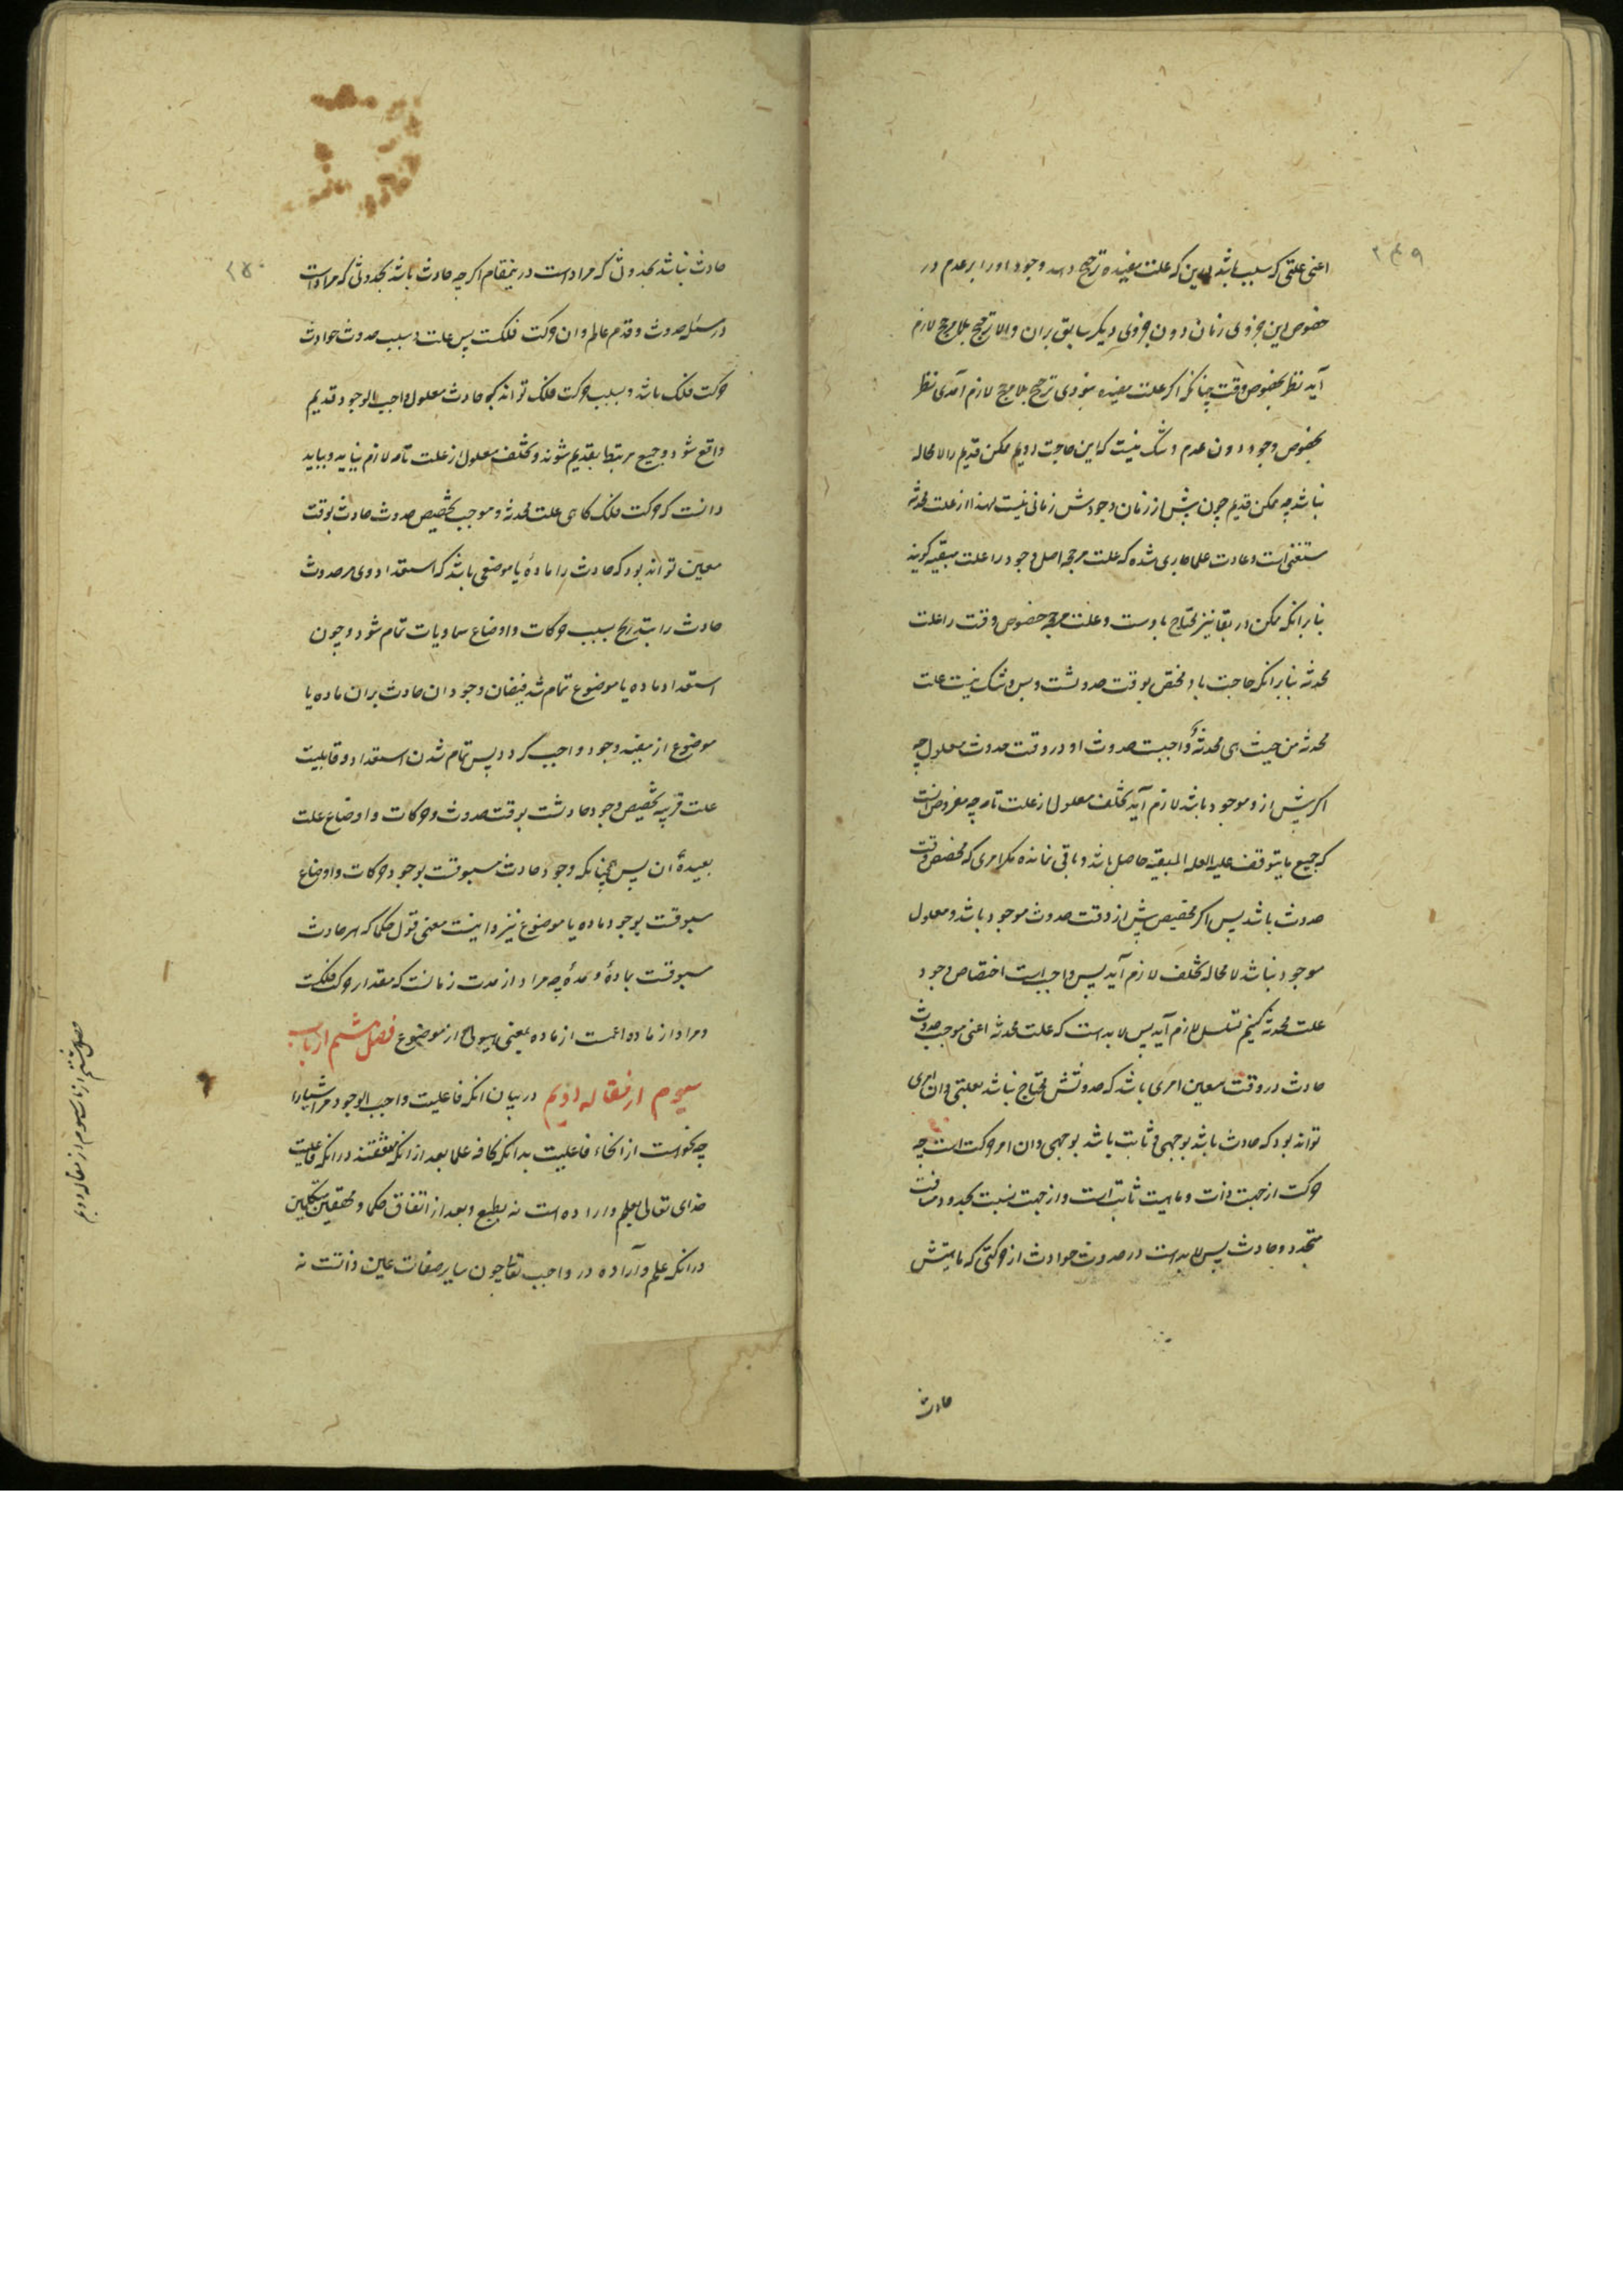 ۲۴۹
اعنی علتی که سبب باشد این که علت مفیده ترجیح دهد وجود او را بر عدم در
خصوص این جزوی زمان دون جزوی دیگر سابق بران والا ترجیح بلا مرجح لازم
آید نظر بخصوص وقت چنانکه اگر علت مفیده نبودی ترجیح بلا مرجح لازم آمدی نظر
بخصوص وجود دون عدم و شک نیست که این حاجت ممکن قدیم را لا محاله
نباشد چه ممکن قدیم چون پیش از زمان وجودش زمانی نیست لهذا از علت محدثه
مستغنی است و عادت علما جاری شده که علت مرجحه اصل وجود را علت مبقیه گویند
بنابر انکه ممکن در بقا نیز محتاج باوست و علت مرجحه خصوص وقت را علت
محدثه بنابر انکه حاجت باو مختص بوقت حدوثست و بس و شک نیست علت
محدثه من حیث هی محدثة واجبست حدوث او در وقت حدوث معلول چه
اگر پیش ازو موجود باشد لازم آید تخلف معلول از علت تامه چه مفروض انست
که جمیع ما یتوقف علیه العله المبقیه حاصل باشد و باقی نمانده مگر امری که مخصص وقت
حدوث باشد پس اگر مخصص پیش از وقت حدوث موجود باشد و معلول
موجود نباشد لا محاله تخلف لازم آید پس واجب است اختصاص وجود
علت محدثه تسلسل لازم آید پس لا بدست که علت محدثه اعنی موجب حدوث
حادث در وقت معین امری باشد که حدوثش محتاج نباشد بعلتی و ان امری
تواند بود که حادث باشد بوجهی و ثابت باشد بوجهی و ان امر حرکت است چه
حرکت از جهت ذات و ماهیت ثابت است و از جهت نسبت بحدود مسافت
متجدد و حادث پس لا بدست در حدوث حوادث از حرکتی که ماهیتش
حادث
۲۵۰
حادث نباشد بحدوثی که مراد است درینمقام اگر چه حادث باشد بحدوثی که مراد است
در مسئله حدوث و قدم عالم و ان حرکت فلکست پس علت و سبب حدوث حوادث
حرکت فلک باشد و بسبب حرکت فلک تواند که حادث معلول واجب الوجود قدیم
واقع شود و جمیع مرتبط بقدیم شوند و تخلف معلول از علت تامه لازم نیاید و بباید
دانست که حرکت فلک گاهی علت محدثه و موجب تخصیص حدوث حادث بوقت
معین تواند بود که حادث را ماده یا موضعی باشد که استعداد وی مر حدوث
حادث را بتدریج بسبب حرکات و اوضاع سماویات تمام شود و چون
استعداد ماده یا موضوع تمام شد فیضان وجود ان حادث بران ماده یا
موضوع از مبقیه وجود واجب گردد پس تمام شدن استعداد و قابلیت
علت قریبه تخصیص وجود حادثست بوقت حدوث و حرکات و اوضاع علت
بعیدهٔ ان پس چنانکه وجود حادث مسبوقست بوجود حرکات و اوضاع
مسبوقست بوجود ماده یا موضوع نیز و اینست معنی قول حکما که هر حادث
مسبوقست بمادة و مدة چه مراد از مدت زمانست که مقدار حرکت فلکست
و مراد از ماده اعمست از ماده بمعنی هیولی و از موضوع فصل ششم از باب
سیوم از مقاله دویم در بیان انکه فاعلیت واجب الوجود مر اشیا را
چه نحو است از انحاء فاعلیت بدانکه کافه علما بعد از انکه متفقند در انکه فاعلیت
خدای تعالی بعلم و اراده است نه بطبع و بعد از اتفاق حکما و محققین متکلمین
در انکه علم و آراده در واجب تعالی چون سایر صفات عین ذاتست نه
فصل ششم از باب سیوم از مقاله دویم